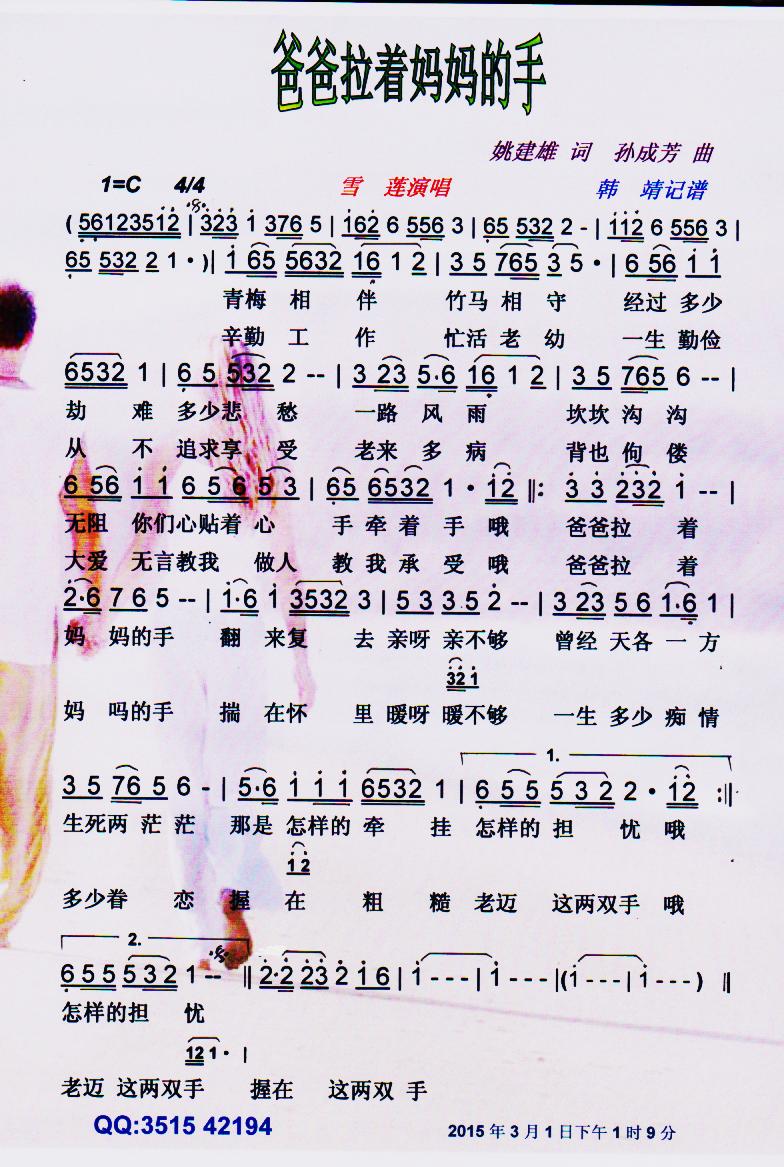 爸爸拉着妈妈的手
姚建雄 词 孙成芳 曲
1=C 4/4 雪 莲演唱 韩 靖记谱
( 56123512 | 323 1 3765 5 | 162 6 556 3 | 65 532 2 - | 112 6 556 3 |
65 532 2 1 · )| 1 65 5632 16 1 2 | 3 5 765 3 5 · | 6 56 1 1
青梅 相 伴 竹马 相 守 经过 多少
辛勤 工 作 忙活 老 幼 一生 勤俭
6532 1 | 6 5 532 2 -- | 3 23 5·6 16 1 2 | 3 5 765 6 -- |
劫 难 多少悲 愁 一路 风 雨 坎坎 沟 沟
从 不 追求享 受 老来 多 病 背也 佝 偻
6 56 1 1 6 5 6 5 3 | 65 6532 1 · 12 ‖: 3 3 232 1 -- |
无阻 你们心贴着 心 手 牵 着 手 哦 爸爸拉 着
大爱 无言教我 做人 教 我 承 受 哦 爸爸拉 着
2·6 7 6 5 -- | 1·6 1 3532 3 | 5 3 3 5 2 -- | 3 23 5 6 1·6 1 |
妈 妈的手 翻 来复 去 亲呀 亲不够 曾经 天各 一 方
32 1
妈 吗的手 揣 在怀 里 暖呀 暖不够 一生 多少 痴 情
1.
3 5 76 5 6 - | 5·6 1 1 1 6532 1 | 6 5 5 5 3 2 2 · 12 :‖
生死两 茫 茫 那是 怎样的 牵 挂 怎样的 担 忧 哦
1 2
多少眷 恋 握 在 粗 糙 老迈 这两双手 哦
2.
6 5 5 5 3 2 1 -- ‖ 2·2 2 3 2 1 6 | 1 - - - | 1 - - - |( 1 - - - | 1 - - - ) ‖
怎样的担 忧
12 1 · |
老迈 这两双手 握在 这两双 手
QQ:3515 42194 2015 年 3 月 1 日下午 1 时 9 分